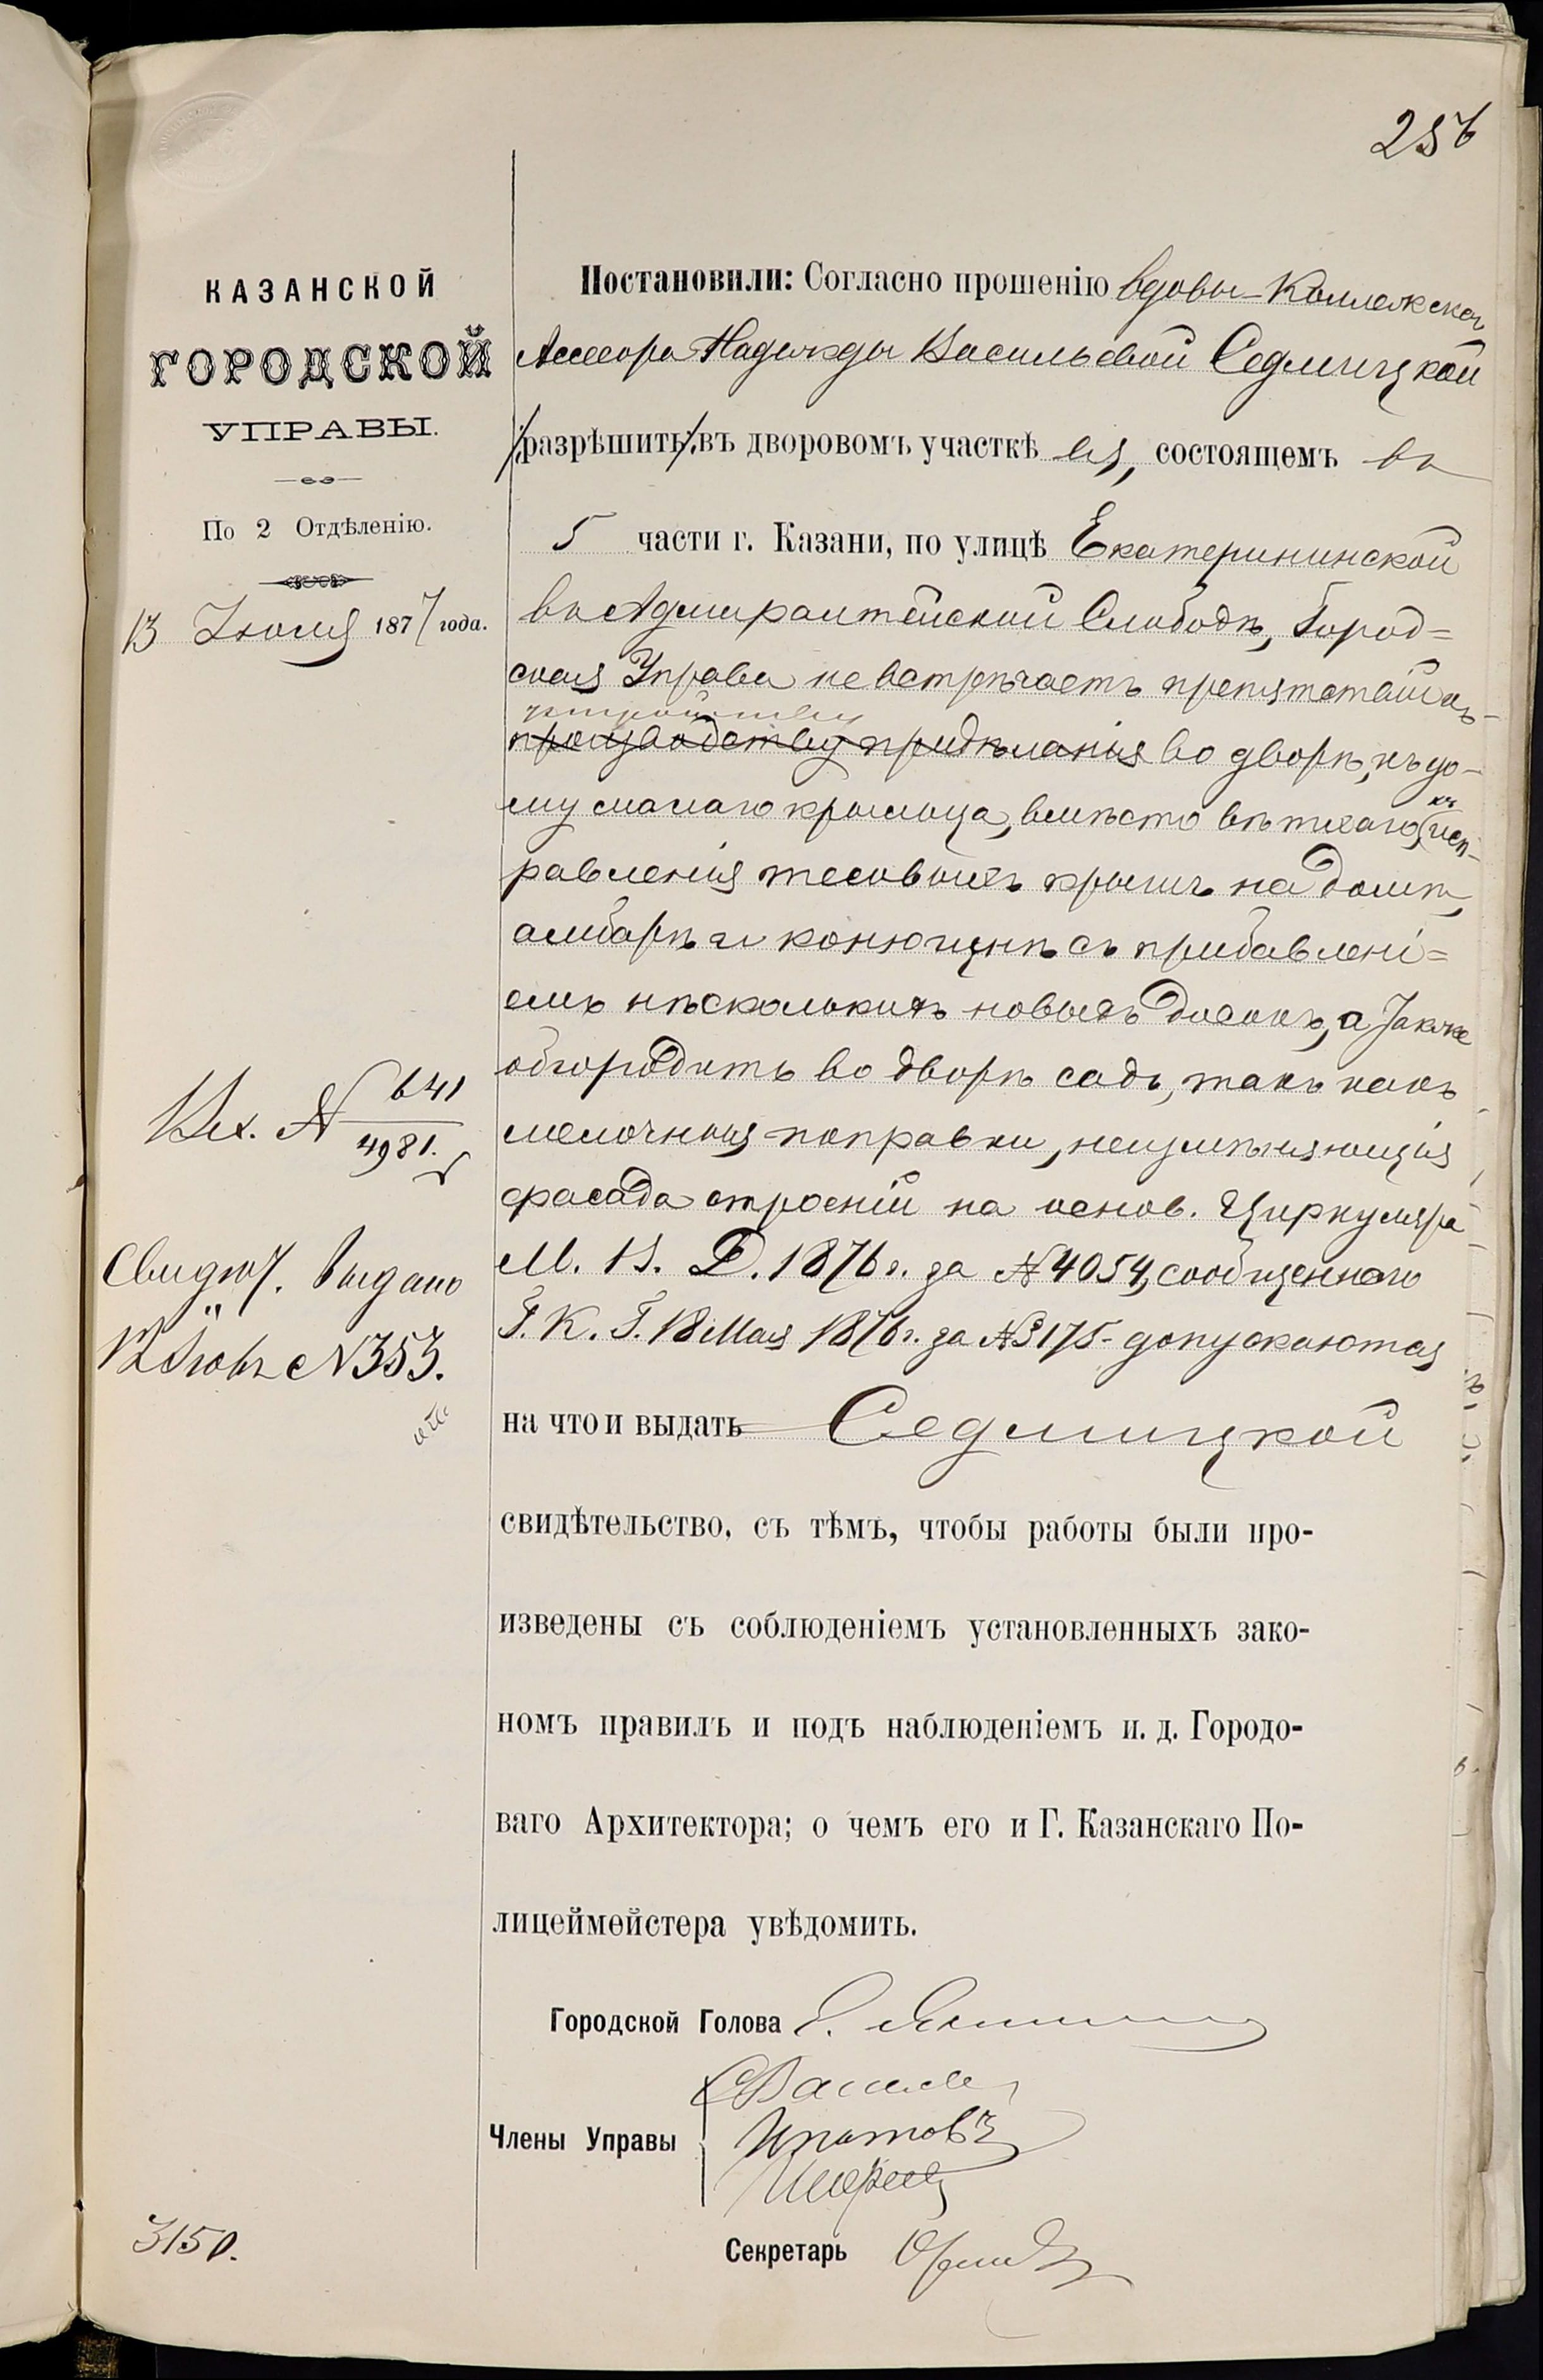 256
КАЗАНСКОЙ
ГОРОДСКОЙ
УПРАВЫ.
По 2 Отдѣленію.
13 Іюля 1877 года.
Вх. № 641
4981.
Свидѣт. выдано
№ 353.
3150.
Постановили: Согласно прошенію вдовы Коллежскаго
Ассесора Надежды Васильевой Седлицкой
/разрѣшить/ въ дворовомъ участкѣ ея, состоящемъ въ
5 части г. Казани, по улицѣ Екатерининской
въ Адмиралтейской Слободѣ, Город=
ская Управа не встрѣчаетъ препятствій къ
устройству
производству придѣланія во дворѣ, къ до-
му малаго крыльца, вмѣсто ветхаго, къ исп-
равленія тесовыхъ крышъ на домѣ,
амбарѣ и конюшнѣ съ прибавлені=
емъ нѣсколькихъ новыхъ досокъ, а также
обгородить во дворѣ садъ, такъ какъ
мелочныя поправки, неизмѣняющія
фасада строеній на основ. Циркуляра
М. В. Д. 1876 г. за № 4054, сообщеннаго
Г. К. Г. 18 Мая 1876 г. за № 3175 - допускаются
на что и выдать Седлицкой
свидѣтельство, съ тѣмъ, чтобы работы были про-
изведены съ соблюденіемъ установленныхъ зако-
номъ правилъ и подъ наблюденіемъ и. д. Городо-
ваго Архитектора; о чемъ его и Г. Казанскаго По-
лицеймейстера увѣдомить.
Городской Голова
Члены Управы
Ипатовъ
Секретарь